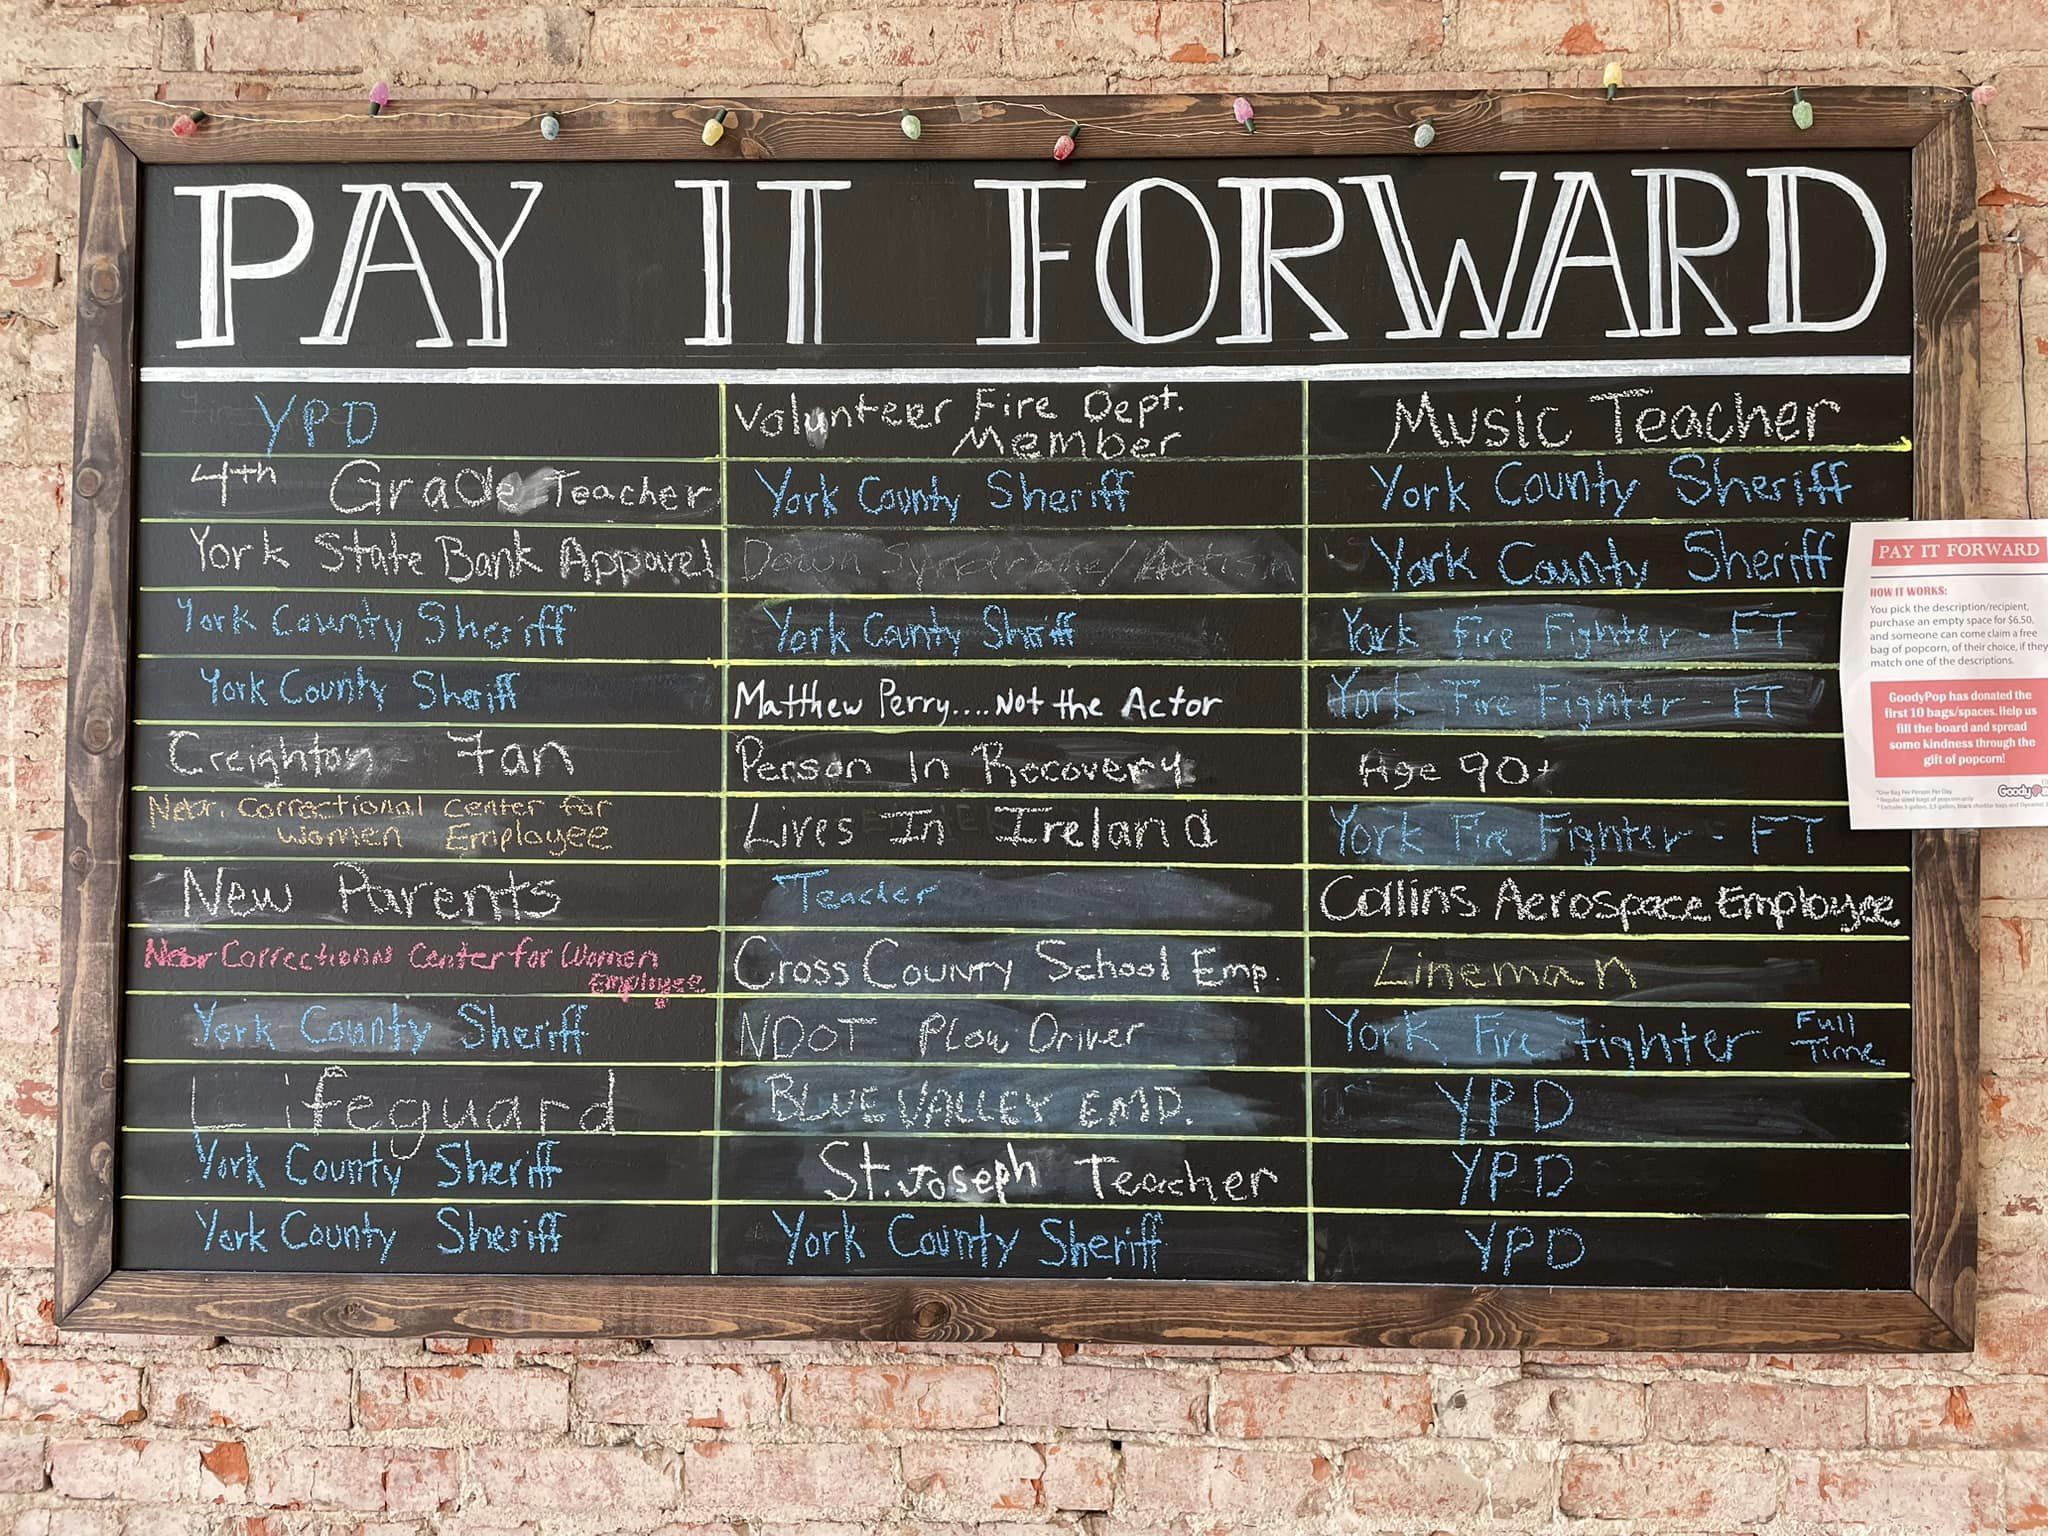 PAY IT FORWARD
YPD
4th Grade Teacher
York State Bank Apparel
York County Sheriff
York County Sheriff
Creighton Fan
Nebr. Correctional Center for
Women Employee
New Parents
Nebr Correctional Center for Women
Employee
York County Sheriff
Lifeguard
York County Sheriff
York County Sheriff
Volunteer Fire Dept.
Member
York County Sheriff
Down Syndrome/Autism
York County Shriff
Matthew Perry....Not the Actor
Person In Recovery
Lives In Ireland
Teacher
Cross County School Emp.
NDOT Plow Driver
BLUE VALLEY EMP.
St. Joseph Teacher
York County Sheriff
Music Teacher
York County Sheriff
York County Sheriff
York Fire Fighter - FT
York Fire Fighter - FT
Age 90+
York Fire Fighter - FT
Collins Aerospace Employee
Lineman
York Fire Fighter Full
Time
YPD
YPD
YPD
PAY IT FORWARD
HOW IT WORKS:
You pick the description/recipient,
purchase an empty space for $6.50,
and someone can come claim a free
bag of popcorn, of their choice, if they
match one of the descriptions.
GoodyPop has donated the
first 10 bags/spaces. Help us
fill the board and spread
some kindness through the
gift of popcorn!
*One Bag Per Person Per Day
* Regular sized bags of popcorn only